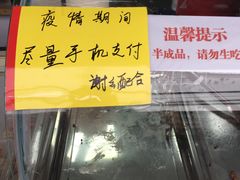 疫情期间
尽量手机支付
谢谢配合
温馨提示
半成品，请勿生吃